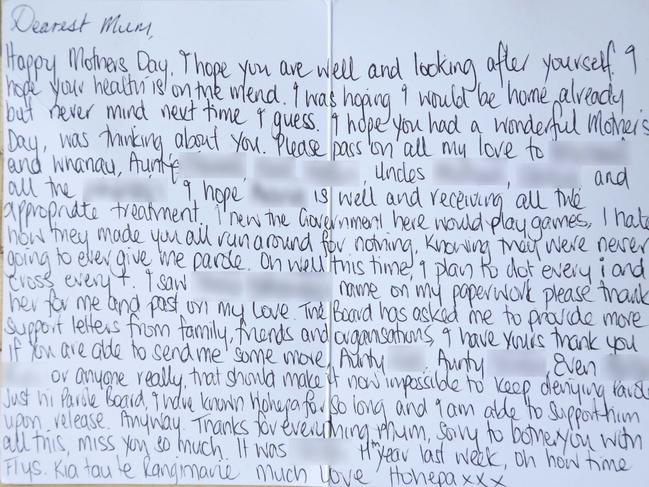 Dearest Mum,
Happy Mothers Day. I hope you are well and looking after yourself. I
hope your health is on the mend. I was hoping I would be home already
but never mind next time I guess. I hope you had a wonderful Mother's
Day, was thinking about you. Please pass on all my love to
and whanau, Aunty Uncles and
all the I hope is well and receiving all the
appropriate treatment. I new the Government here would play games, I hate
how they made you all run around for nothing, knowing they were never
going to ever give me parole. Oh well this time, I plan to dot every i and
cross every t. I saw name on my paperwork please thank
her for me and past on my love. The Board has asked me to provide more
support letters from family, friends and organisations, I have yours thank you
if you are able to send me some more, Aunty Aunty Even
or anyone really, that should make it now impossible to keep denying Parole
Just hi Parole Board, I have known Hohepa for so long and I am able to support him
upon release. Anyway. Thanks for everything Mum, sorry to bother you with
all this, miss you so much. It was year last week, oh how time
Flys. Kia tau te Rangimarie much love Hohepa xxx